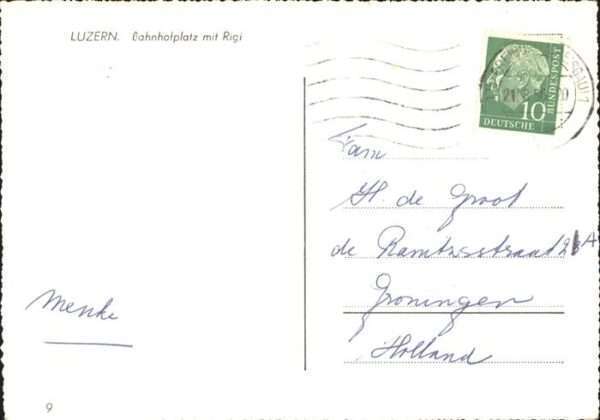 LUZERN. Bahnhofplatz mit Rigi
10
DEUTSCHE
BUNDESPOST
Fam
H. de Groot
de Ramitzstraat
Groningen
Holland
Menke
9